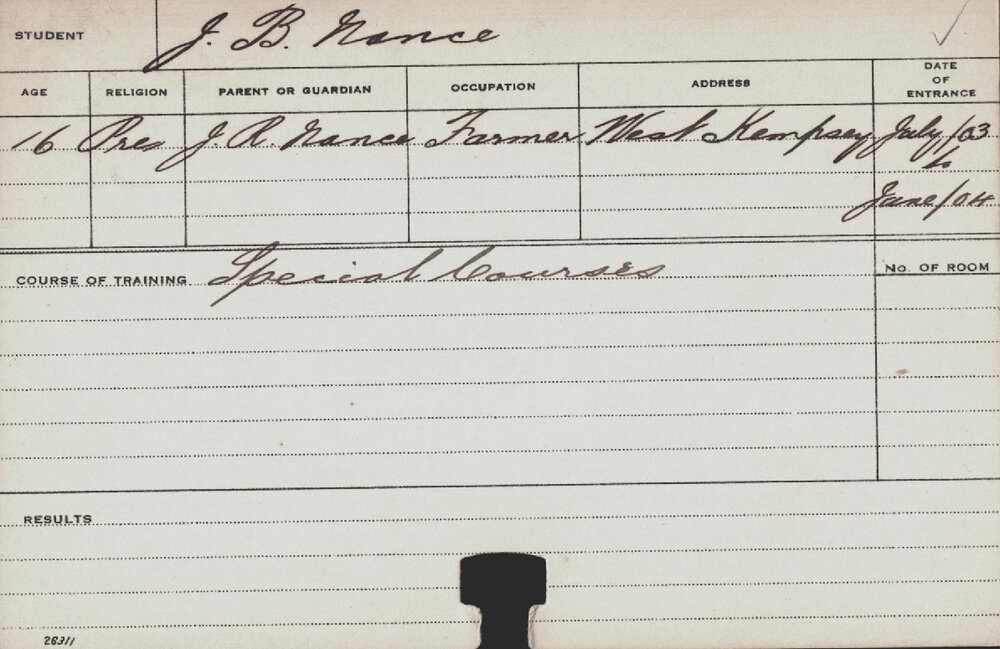 STUDENT J. B. Nance
AGE RELIGION PARENT OR GUARDIAN OCCUPATION ADDRESS DATE OF ENTRANCE
16 Pres J. R. Nance Farmer West Kempsey July/03
to
June/04
COURSE OF TRAINING Special Courses No. OF ROOM
RESULTS
26311